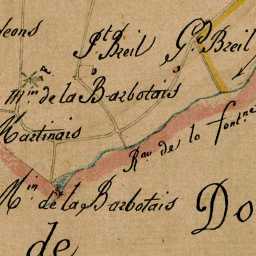 leons
Pt Breil
Gd Breil
min de la Barbotais
Martinais
Rau de la fontne
Min de la Barbotais
Do
de